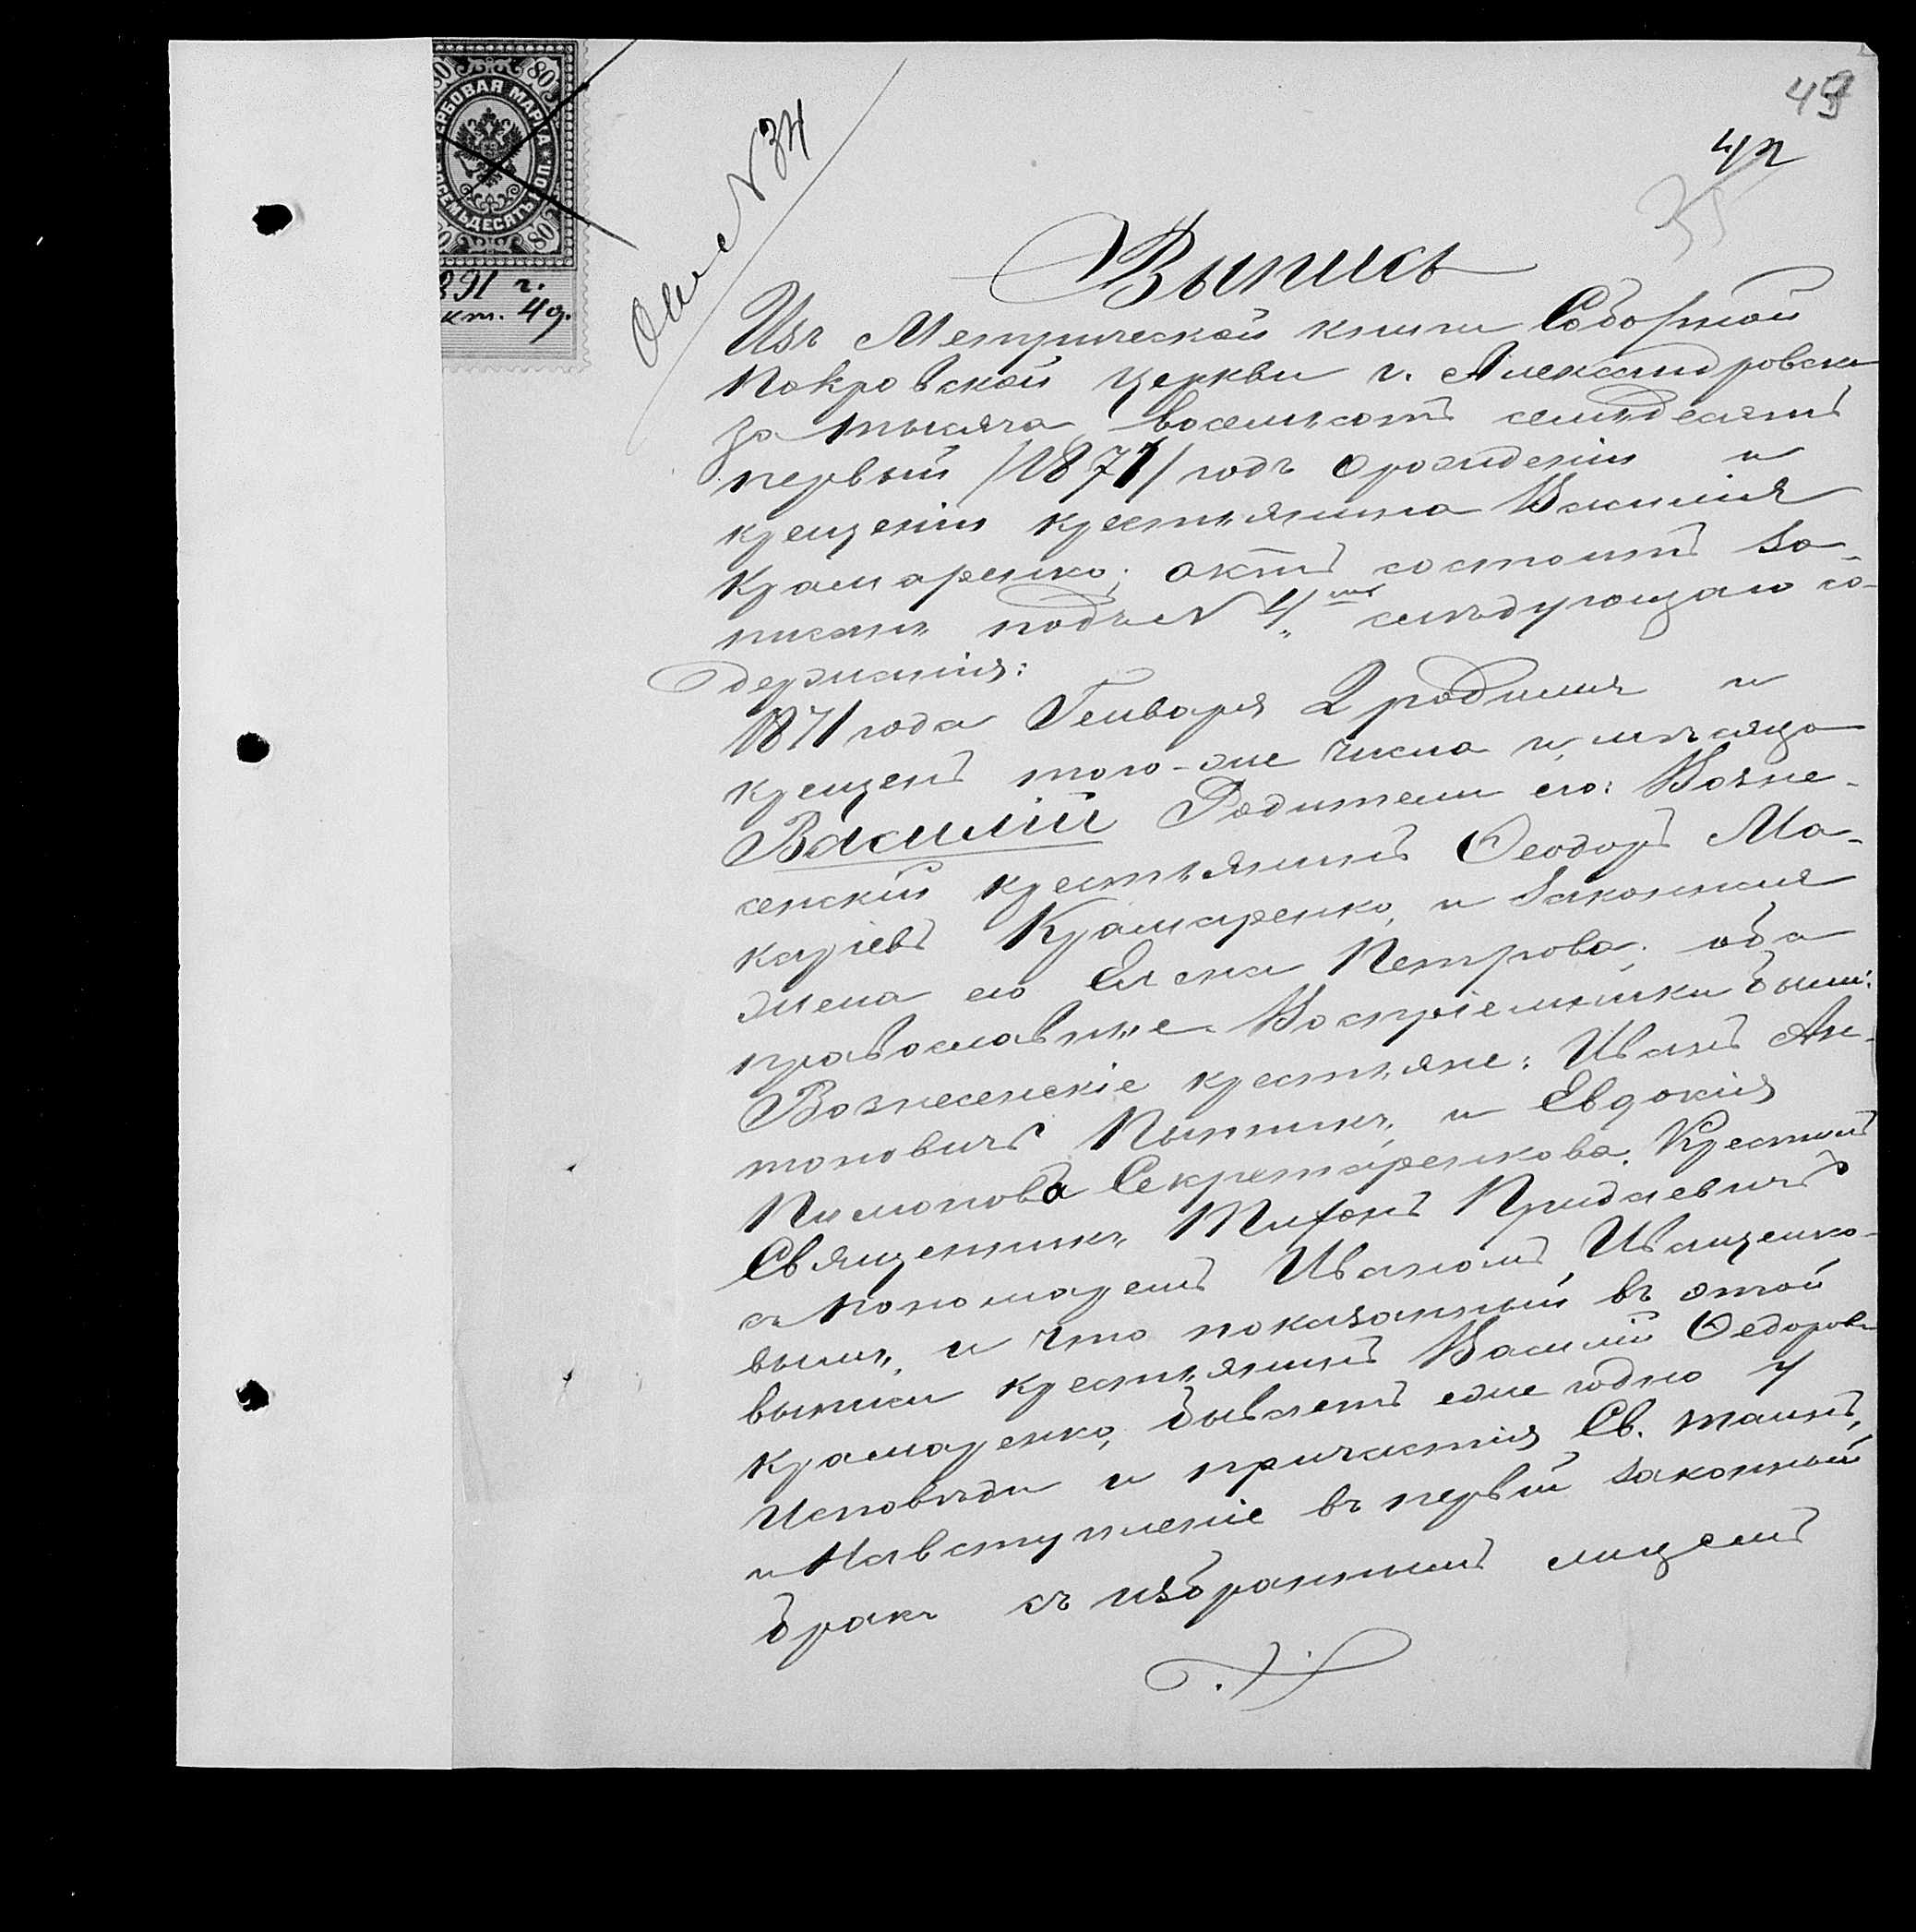 49
42
35
ГЕРБОВАЯ МАРКА
ВОСЕМЬДЕСЯТЪ КОП.
80 80
80 80
891 г.
кт. 4 д.
№ 34
Выпись
Изъ Метрической книги Соборной
Покровской церкви г. Александровска
за тысяча восемьсотъ семьдесятъ
первый /1871/ годъ о рожденіи и
крещеніи крестьянина Василія
Крамаренко; актъ состоитъ за-
писанъ подъ № 4мъ слѣдующаго со-
держанія:
1871 года Генваря 2 родился и
крещенъ того-же числа и мѣсяца
Василій Родители его: Возне-
сенскій крестьянинъ Ѳеодоръ Ма-
каріевъ Крамаренко, и законная
жена его Елена Петрова; оба
православные. Воспріемники были:
Вознесенскіе крестьяне: Иванъ Ан-
тоновичъ и Евдокія
Пимонова Секретаренкова. Крестилъ
Священникъ Тихонъ Придаевичъ
съ пономаремъ Иваномъ Иващенко-
вымъ, и что показанный въ этой
выписи крестьянинъ Василій Ѳедоровъ
Крамаренко, бываетъ еже годно у
Исповѣди и причастія Св. таинъ,
и На вступленіе въ первый законный
бракъ съ избраннымъ лицемъ